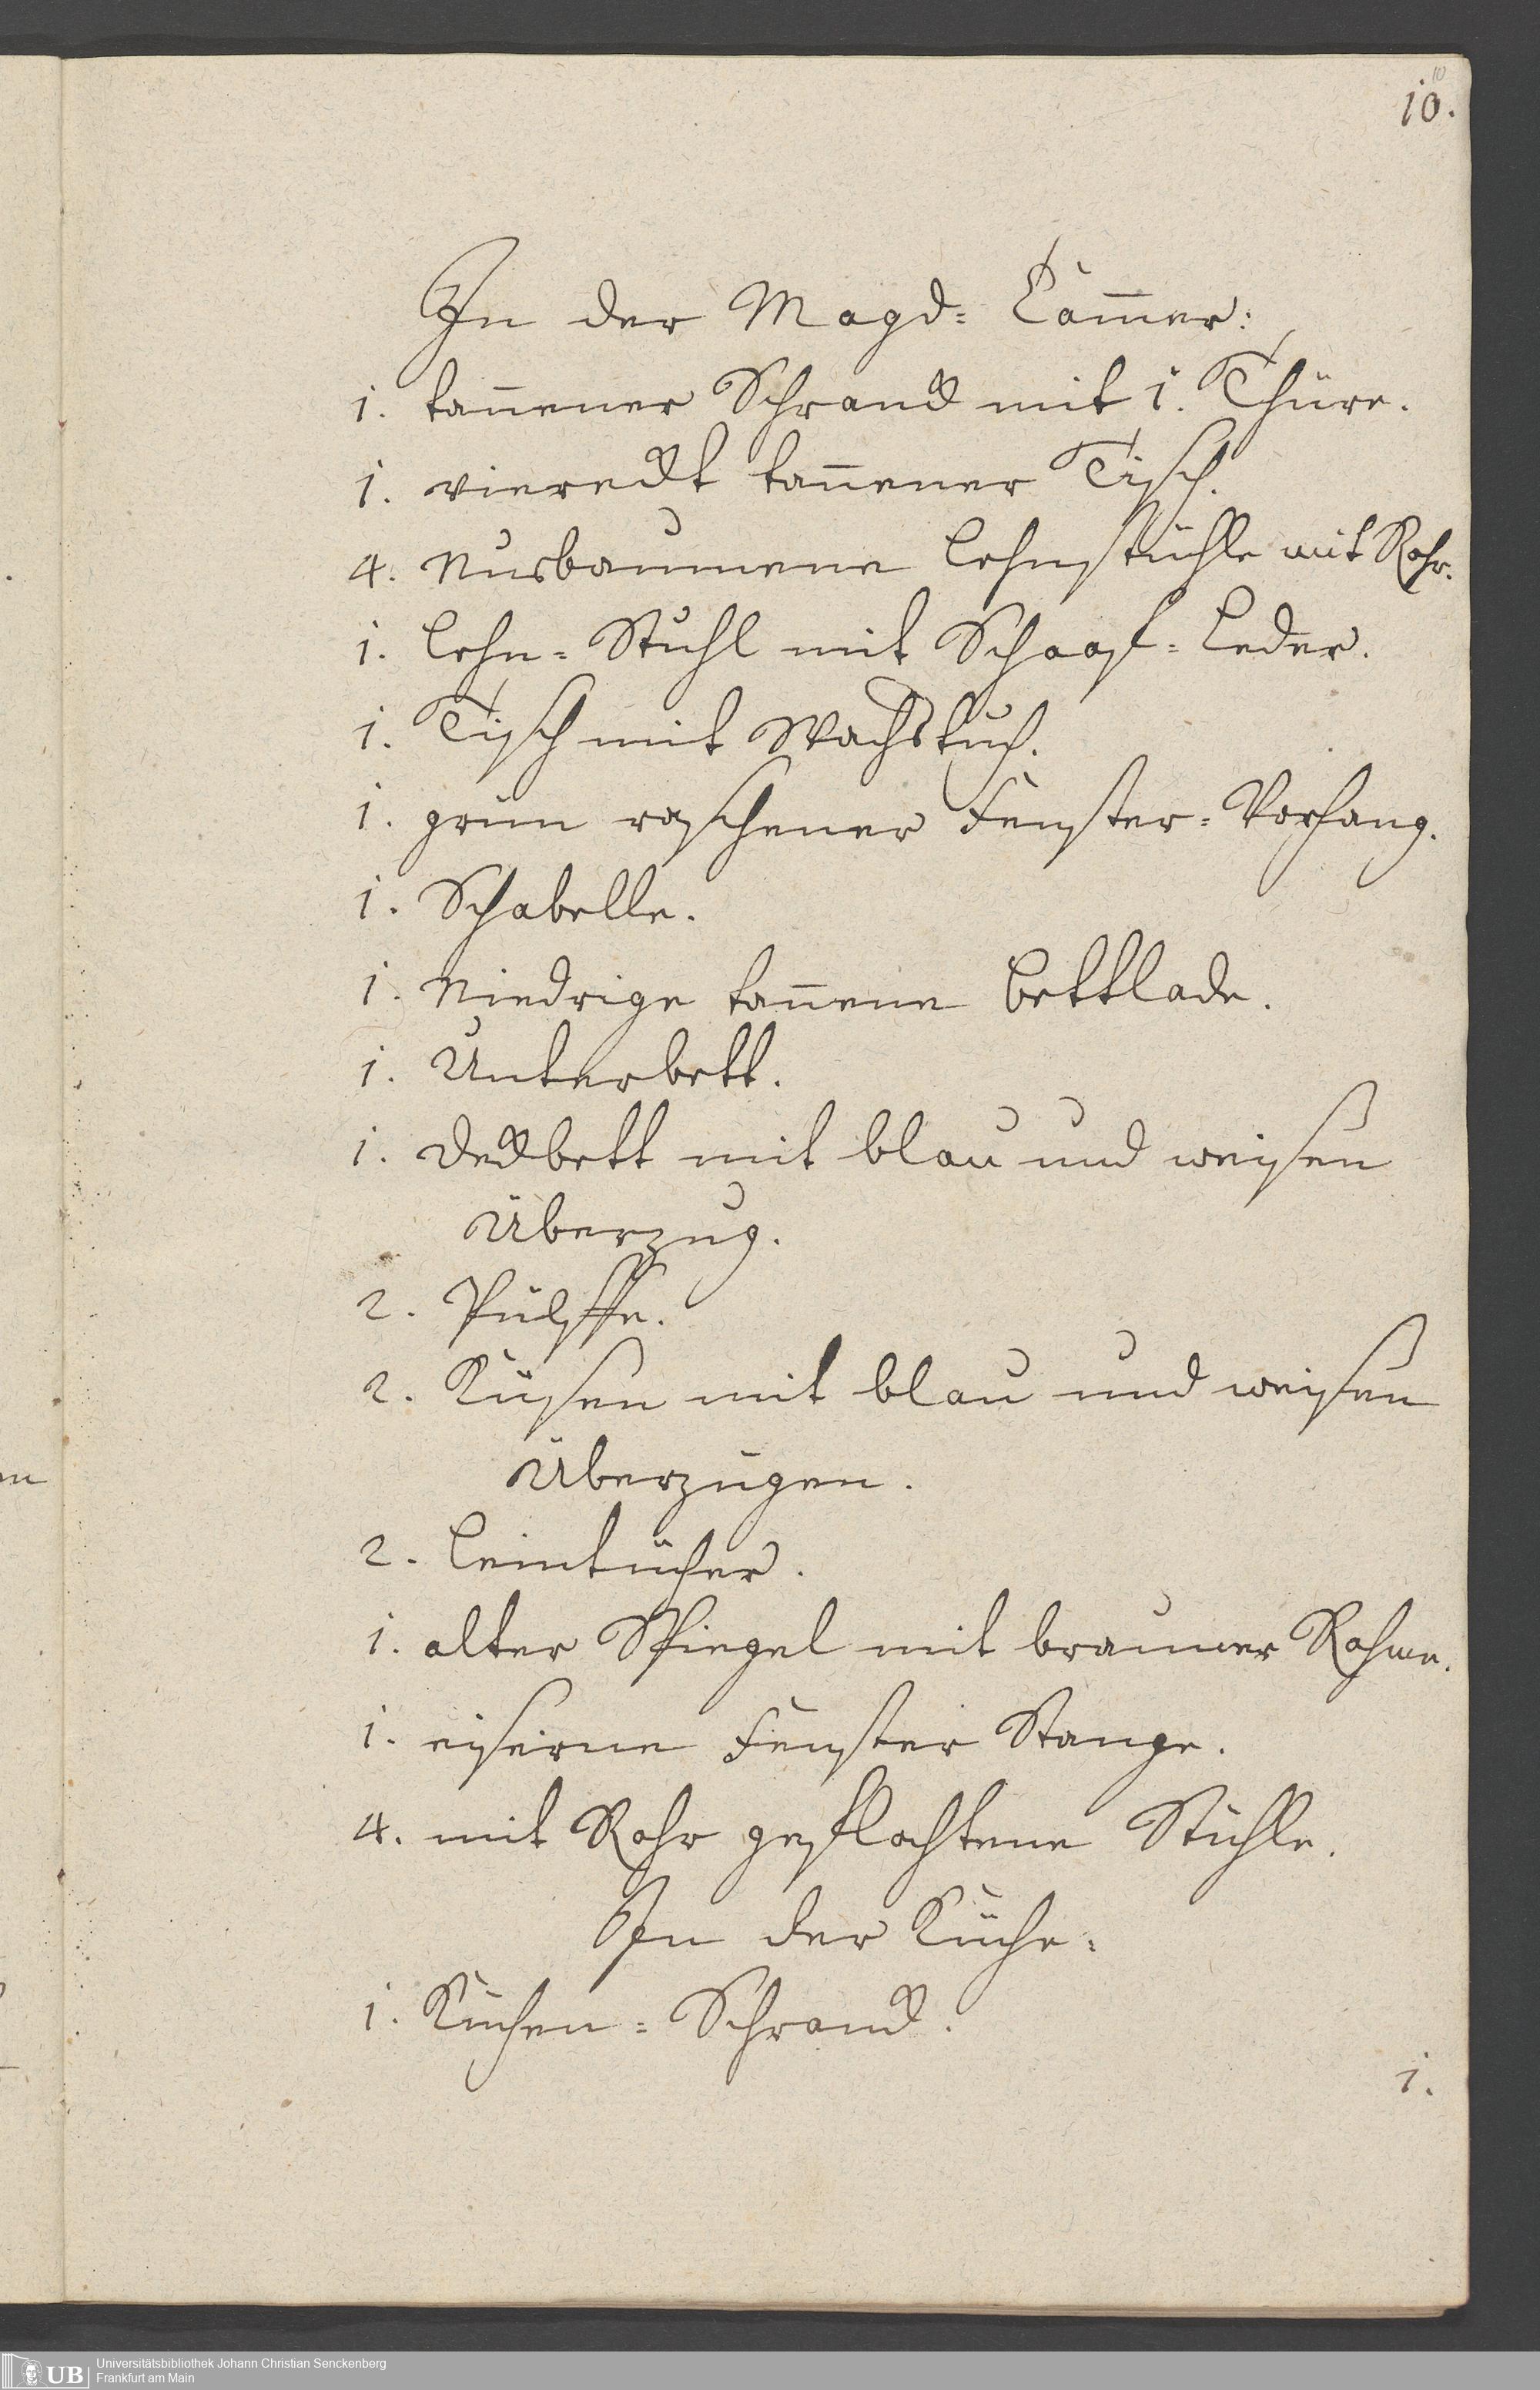 10
10.
In der Magd= Cam̄er:
1. tan̄ener Schranck mit 1. Thüre.
1. viereckt tan̄ener Tisch.
4. Nusbaumene Lehnstühle mit Rohr.
1. Lehn=Stuhl mit Schaaf=Leder.
1. Tisch mit Wachstuch.
1. grün raschener Fenster=Vorhang.
1. Schabelle.
1. Niedrige tan̄ene Bettlade.
1. Unterbett.
1. Deckbett mit blau und weisen
Überzug.
2. Pülffe.
2. Küsen mit blau und weisen
Überzügen.
2. Leintücher.
1. alter Spiegel mit brauner Rahme.
1. eiserne Fenster Stange.
4. mit Rohr geflochtene Stühle.
In der Küche:
1. Küchen=Schranck.
1.
UB Universitätsbibliothek Johann Christian Senckenberg
Frankfurt am Main